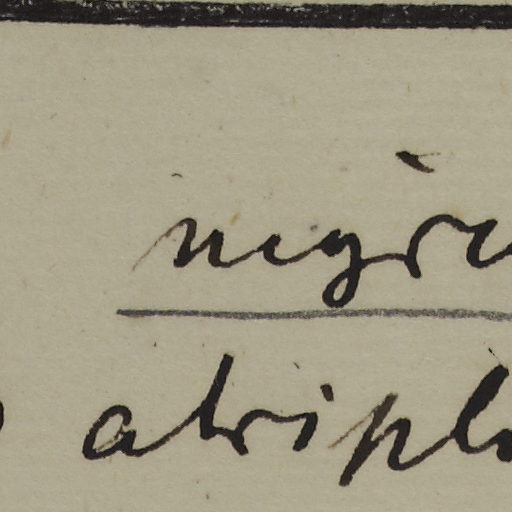 nigri
atripl